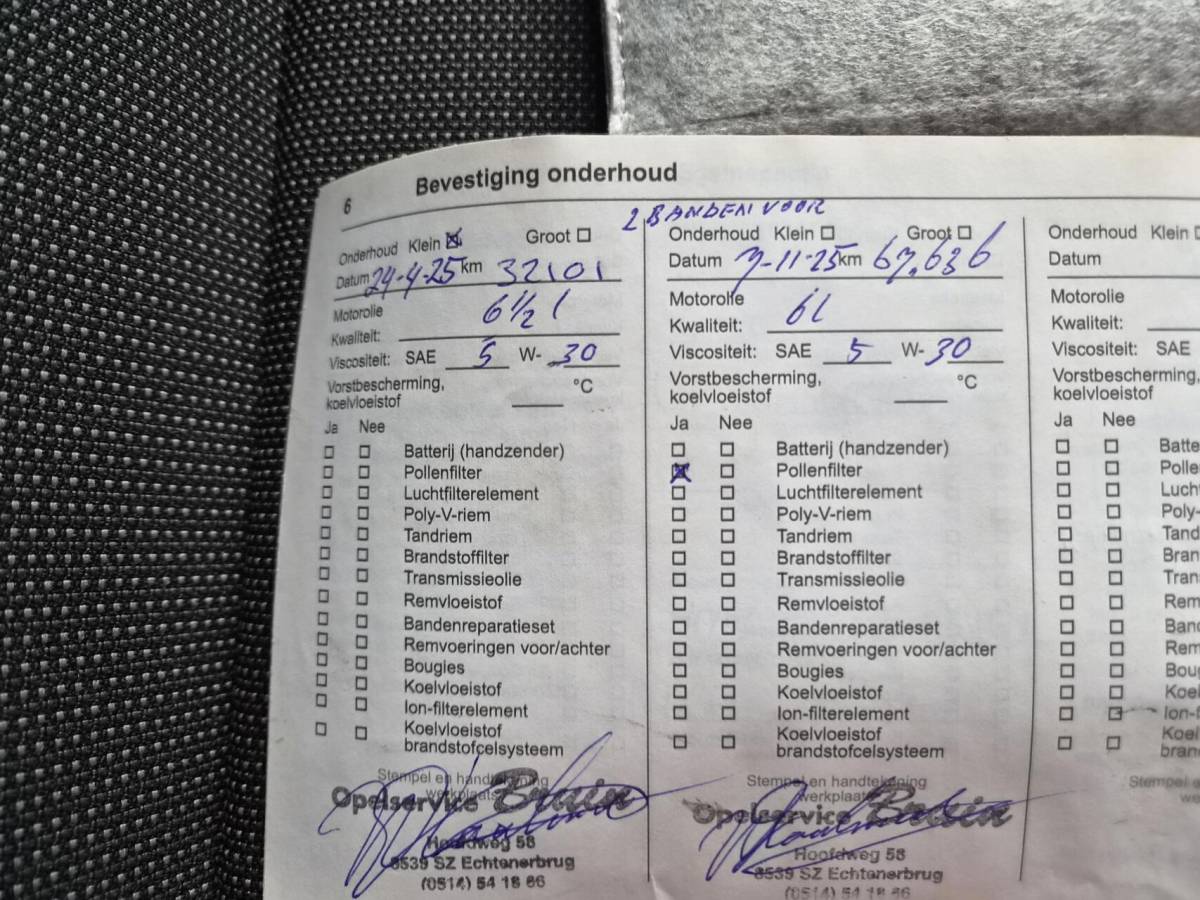 6 Bevestiging onderhoud
2 BANDEN VOOR
Onderhoud Klein Groot
Datum 24-4-25 km 32101
Motorolie 6 1/2 l
Kwaliteit:
Viscositeit: SAE 5 W- 30
Vorstbescherming,
koelvloeistof °C
Ja Nee
Batterij (handzender)
Pollenfilter
Luchtfilterelement
Poly-V-riem
Tandriem
Brandstoffilter
Transmissieolie
Remvloeistof
Bandenreparatieset
Remvoeringen voor/achter
Bougies
Koelvloeistof
Ion-filterelement
Koelvloeistof
brandstofcelsysteem
Stempel en handtekening
werkplaats
Opelservice Bruin
Hoofdweg 58
8539 SZ Echtenerbrug
(0514) 54 18 66
Onderhoud Klein Groot
Datum 7-11-25 km 67.636
Motorolie 6l
Kwaliteit:
Viscositeit: SAE 5 W- 30
Vorstbescherming,
koelvloeistof °C
Ja Nee
Batterij (handzender)
Pollenfilter
Luchtfilterelement
Poly-V-riem
Tandriem
Brandstoffilter
Transmissieolie
Remvloeistof
Bandenreparatieset
Remvoeringen voor/achter
Bougies
Koelvloeistof
Ion-filterelement
Koelvloeistof
brandstofcelsysteem
Stempel en handtekening
werkplaats
Opelservice Bruin
Hoofdweg 58
8539 SZ Echtenerbrug
(0514) 54 18 66
Onderhoud Klein
Datum
Motorolie
Kwaliteit:
Viscositeit: SAE
Vorstbescherming,
koelvloeistof
Ja Nee
Batte
Polle
Lucht
Poly-
Tand
Bran
Tran
Rem
Band
Rem
Boug
Koel
Ion-f
Koel
bran
Stempel
we